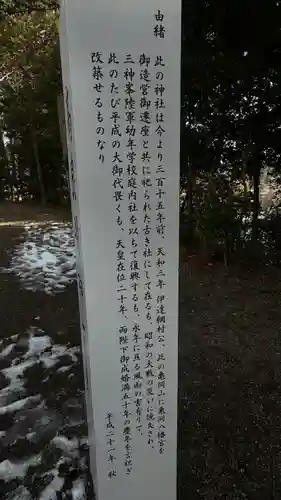 由緒
此の神社は今より三百十五年前、天和三年 伊達綱村公、此の亀岡山に亀岡八幡宮を
御造営御遷座と共に祀られた古き社にして在るも、昭和の大戦の災いに焼失され、
三神峯陸軍幼年学校庭内社を以ちて復興するも、永年に亘る風雪の害有りて、
此のたび平成の大御代畏くも、天皇在位二十年、両陛下御成婚満五十年の慶年を言祝ぎ
改築せるものなり
平成二十一年 秋